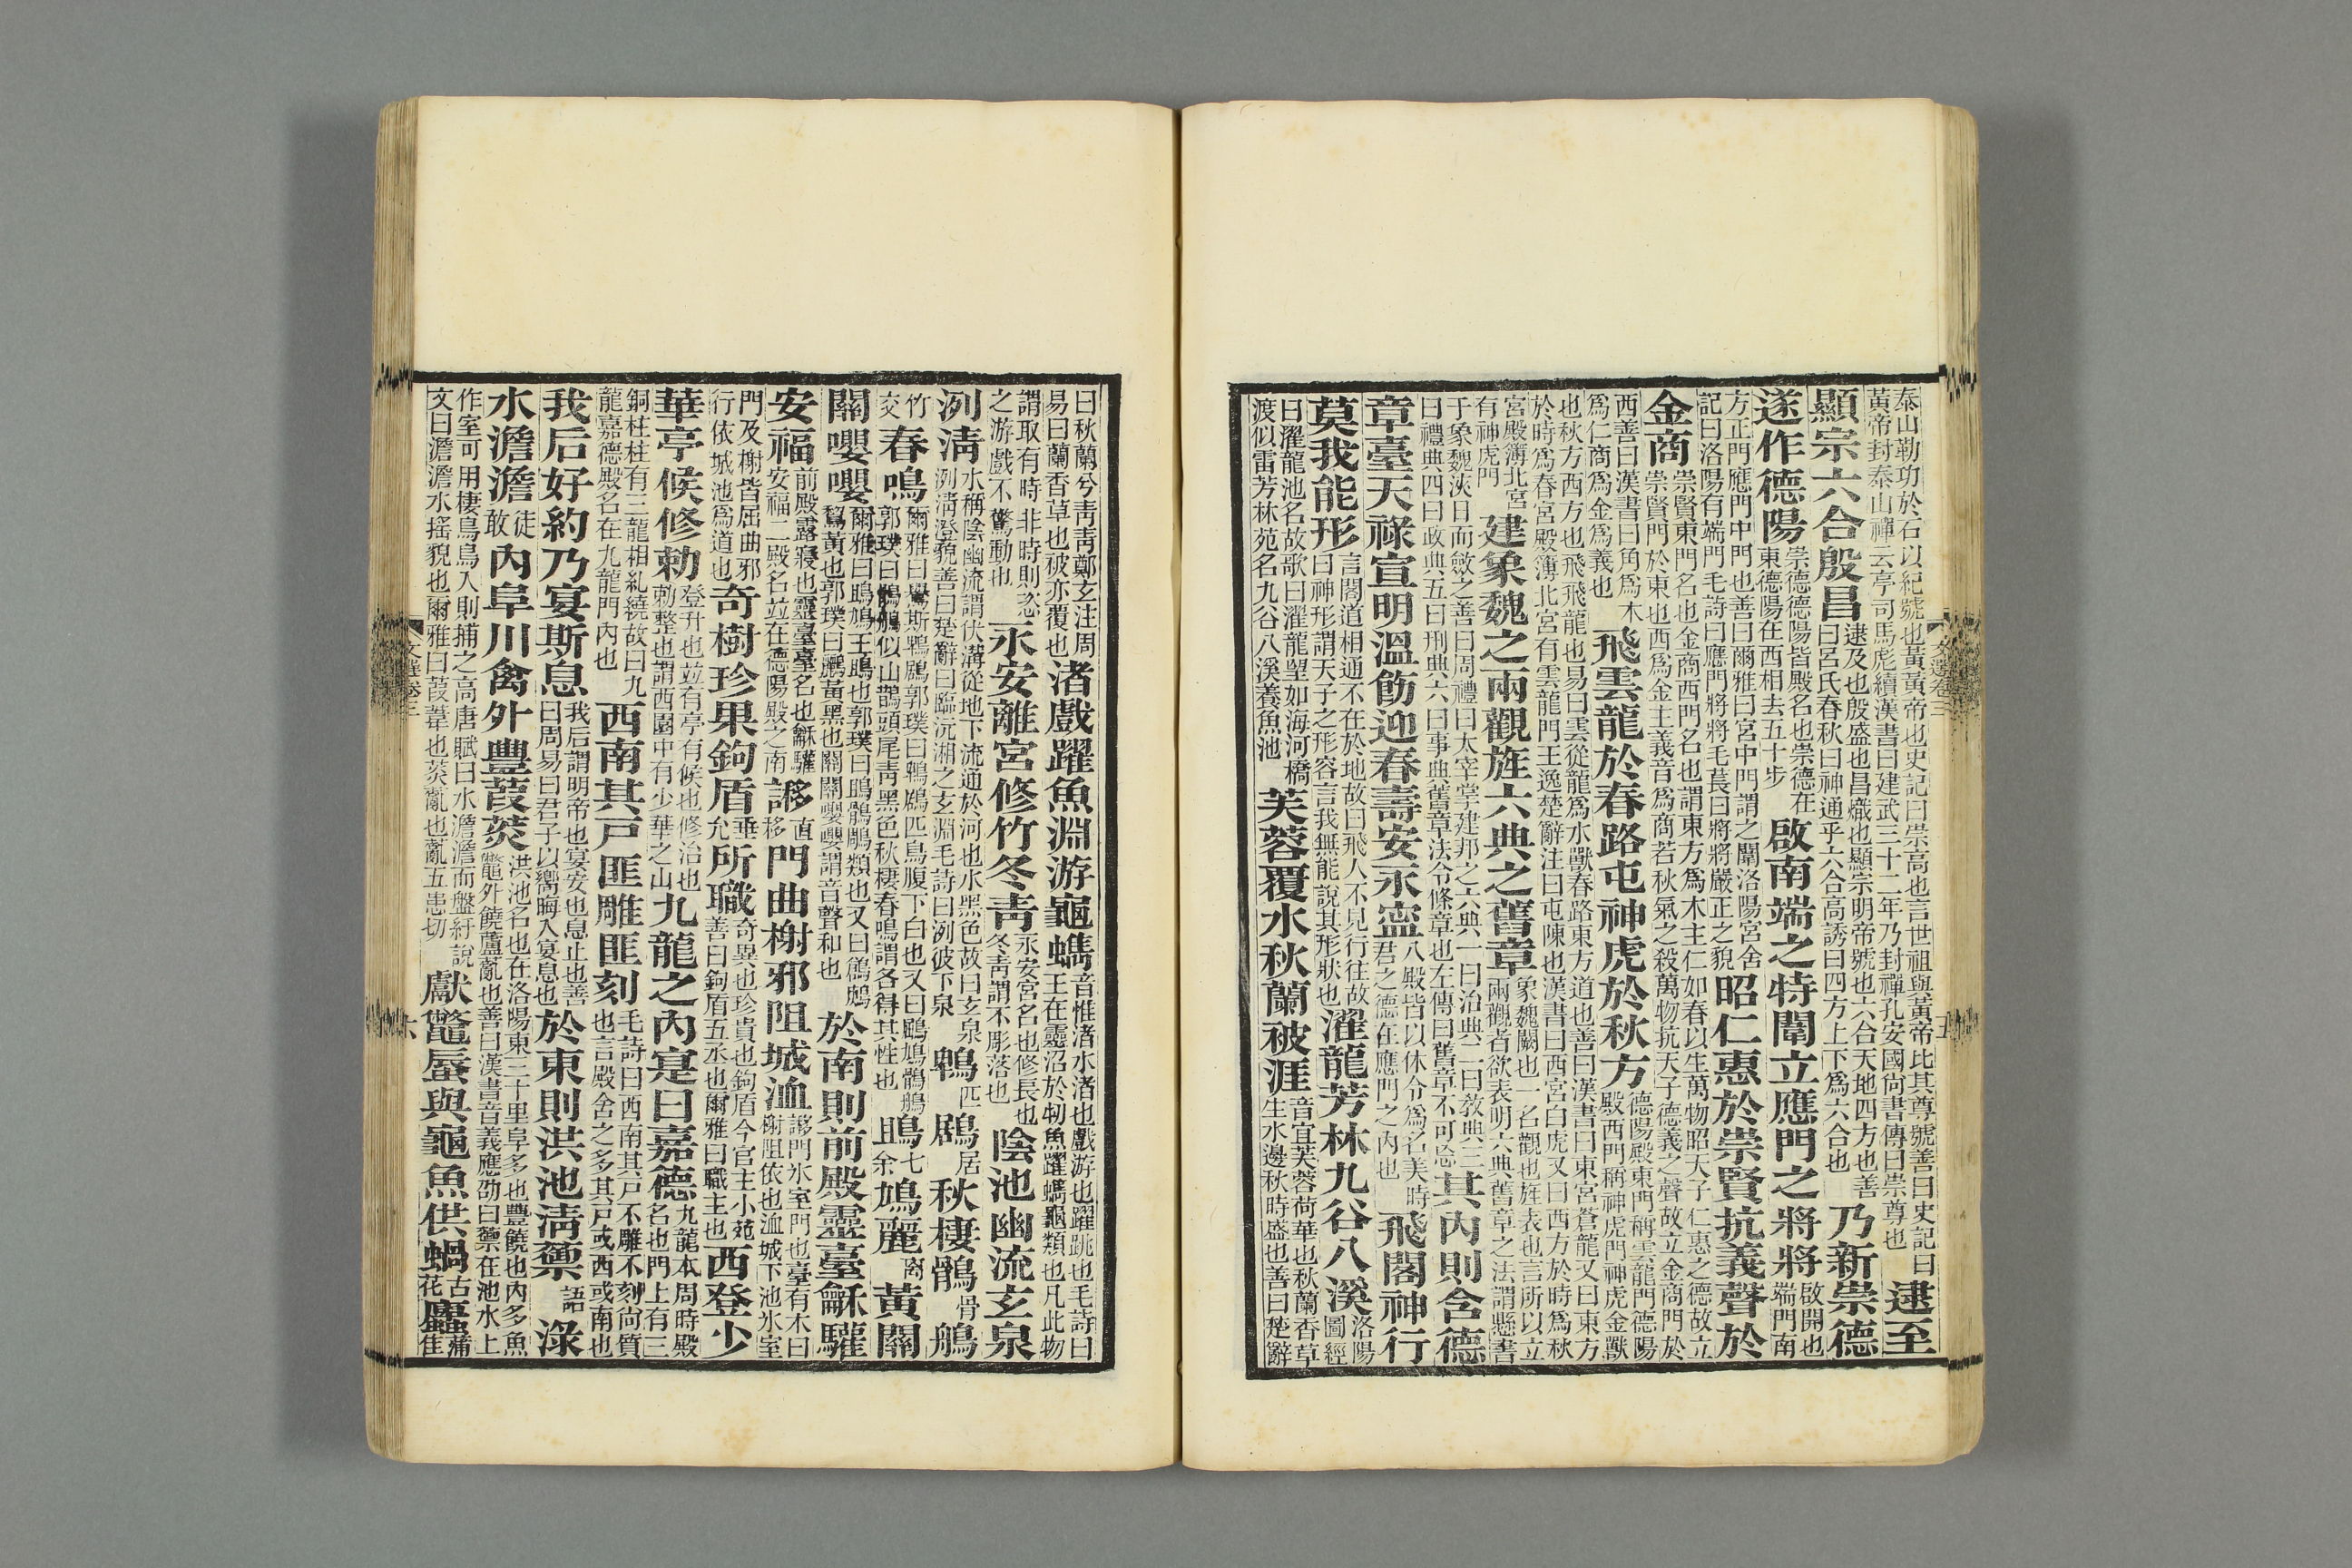 泰山勒功於石以紀號也黃黃帝也史記曰崇高也言世祖與黃帝比其尊號善曰史記曰
黃帝封泰山禪云亭司馬彪續漢書曰建武三十二年乃封禪孔安國尚書傳曰崇尊也 逮至
顯宗六合殷昌 逮及也殷盛也昌熾也顯宗明帝號也六合天地四方也善
曰呂氏春秋曰神通乎六合高誘曰四方上下為六合也 乃新崇德
遂作德陽 崇德德陽皆殿名也崇德在
東德陽在西相去五十步 啟南端之特闈立應門之將將 啟開也
端門南
方正門應門中門也善曰爾雅曰宮中門謂之闈洛陽宮舍
記曰洛陽有端門毛詩曰應門將將毛萇曰將將嚴正之貌 昭仁惠於崇賢抗義聲於
金商 崇賢東門名也金商西門名也謂東方為木主仁如春以生萬物昭天子仁惠之德故立
崇賢門於東也西為金主義音為商若秋氣之殺萬物抗天子德義之聲故立金商門於
西善曰漢書曰角為木
為仁商為金為義也 飛雲龍於春路屯神虎於秋方 德陽殿東門稱雲龍門德陽
殿西門稱神虎門神虎金獸
也秋方西方也飛飛龍也易曰雲從龍為水獸春路東方道也善曰漢書曰東宮蒼龍又曰東方
於時為春宮殿簿北宮有雲龍門王逸楚辭注曰屯陳也漢書曰西宮白虎又曰西方於時為秋
宮殿簿北宮
有神虎門 建象魏之兩觀旌六典之舊章 象魏闕也一名觀也旌表也言所以立
兩觀者欲表明六典舊章之法謂懸書
于象魏浹日而斂之善曰周禮曰太宰掌建邦之六典一曰治典二曰教典三
曰禮典四曰政典五曰刑典六曰事典舊章法令條章也左傳曰舊章不可忘 其內則含德
章臺天祿宣明溫飭迎春壽安永寧 八殿皆以休令為名美時
君之德在應門之內也 飛閣神行
莫我能形 言閣道相通不在於地故曰飛人不見行往故
曰神形謂天子之形容言我無能說其形狀也 濯龍芳林九谷八溪 洛陽
圖經
曰濯龍池名故歌曰濯龍望如海河橋
渡似雷芳林苑名九谷八溪養魚池 芙蓉覆水秋蘭被涯 音宜芙蓉荷華也秋蘭香草
生水邊秋時盛也善曰楚辭
曰秋蘭兮青青鄭玄注周
易曰蘭香草也被亦覆也 渚戲躍魚淵游龜蠵 音惟渚水渚也戲游也躍跳也毛詩曰
王在靈沼於牣魚躍蠵龜類也凡此物
謂取有時非時則恣
之游戲不驚動也 永安離宮修竹冬青 永安宮名也修長也
冬青謂不彫落也 陰池幽流玄泉
洌清 水稱陰幽流謂伏溝從地下流通於河也水黑色故曰玄泉
洌清澄貌善曰楚辭曰臨沅湘之玄淵毛詩曰洌彼下泉 鵯匹鶋居秋棲鶻骨鵃
竹
交 春鳴 爾雅曰鸒斯鵯鶋郭璞曰鵯鶋匹鳥腹下白也又曰鶌鳩鶻鵃
郭璞曰鶻鵃似山鵲頭尾青黑色秋棲春鳴謂各得其性也 鴡七余鳩麗离黃關
關嚶嚶 爾雅曰鴡鳩王鴡也郭璞曰鴡鵰類也又曰鶬鶊
鴷黃也郭璞曰鸝黃黑也關關嚶嚶謂音聲和也 於南則前殿靈臺龢驩
安福 前殿露寢也靈臺臺名也龢驩
安福二殿名並在德陽殿之南 謻直移門曲榭邪阻城洫 謻門冰室門也臺有木曰
榭阻依也洫城下池冰室
門及榭皆屈曲邪
行依城池為道也 奇樹珍果鉤盾垂允所職 奇異也珍貴也鉤盾今官主小苑
善曰鉤盾五丞也爾雅曰職主也 西登少
華亭候修勅 登升也並有亭有候也修治也
勅整也謂西園中有少華之山 九龍之內寔曰嘉德 九龍本周時殿
名也門上有三
銅柱柱有三龍相糺繞故曰九
龍嘉德殿名在九龍門內也 西南其戶匪雕匪刻 毛詩曰西南其戶不雕不刻尚質
也言殿舍之多其戶或西或南也
我后好約乃宴斯息 我后謂明帝也宴安也息止也善
曰周易曰君子以嚮晦入宴息也 於東則洪池清籞語淥
水澹澹 徒
敢 內阜川禽外豐葭菼 洪池名也在洛陽東三十里阜多也豐饒也內多魚
鼈外饒蘆薍也善曰漢書音義應劭曰籞在池水上
作室可用棲鳥鳥入則捕之高唐賦曰水澹澹而盤紆說
文曰澹澹水搖貌也爾雅曰葭葦也菼薍也薍五患切 獻鼈蜃與龜魚供蝸古
花蠯蒲
隹
文選卷三 五
文選卷三 六